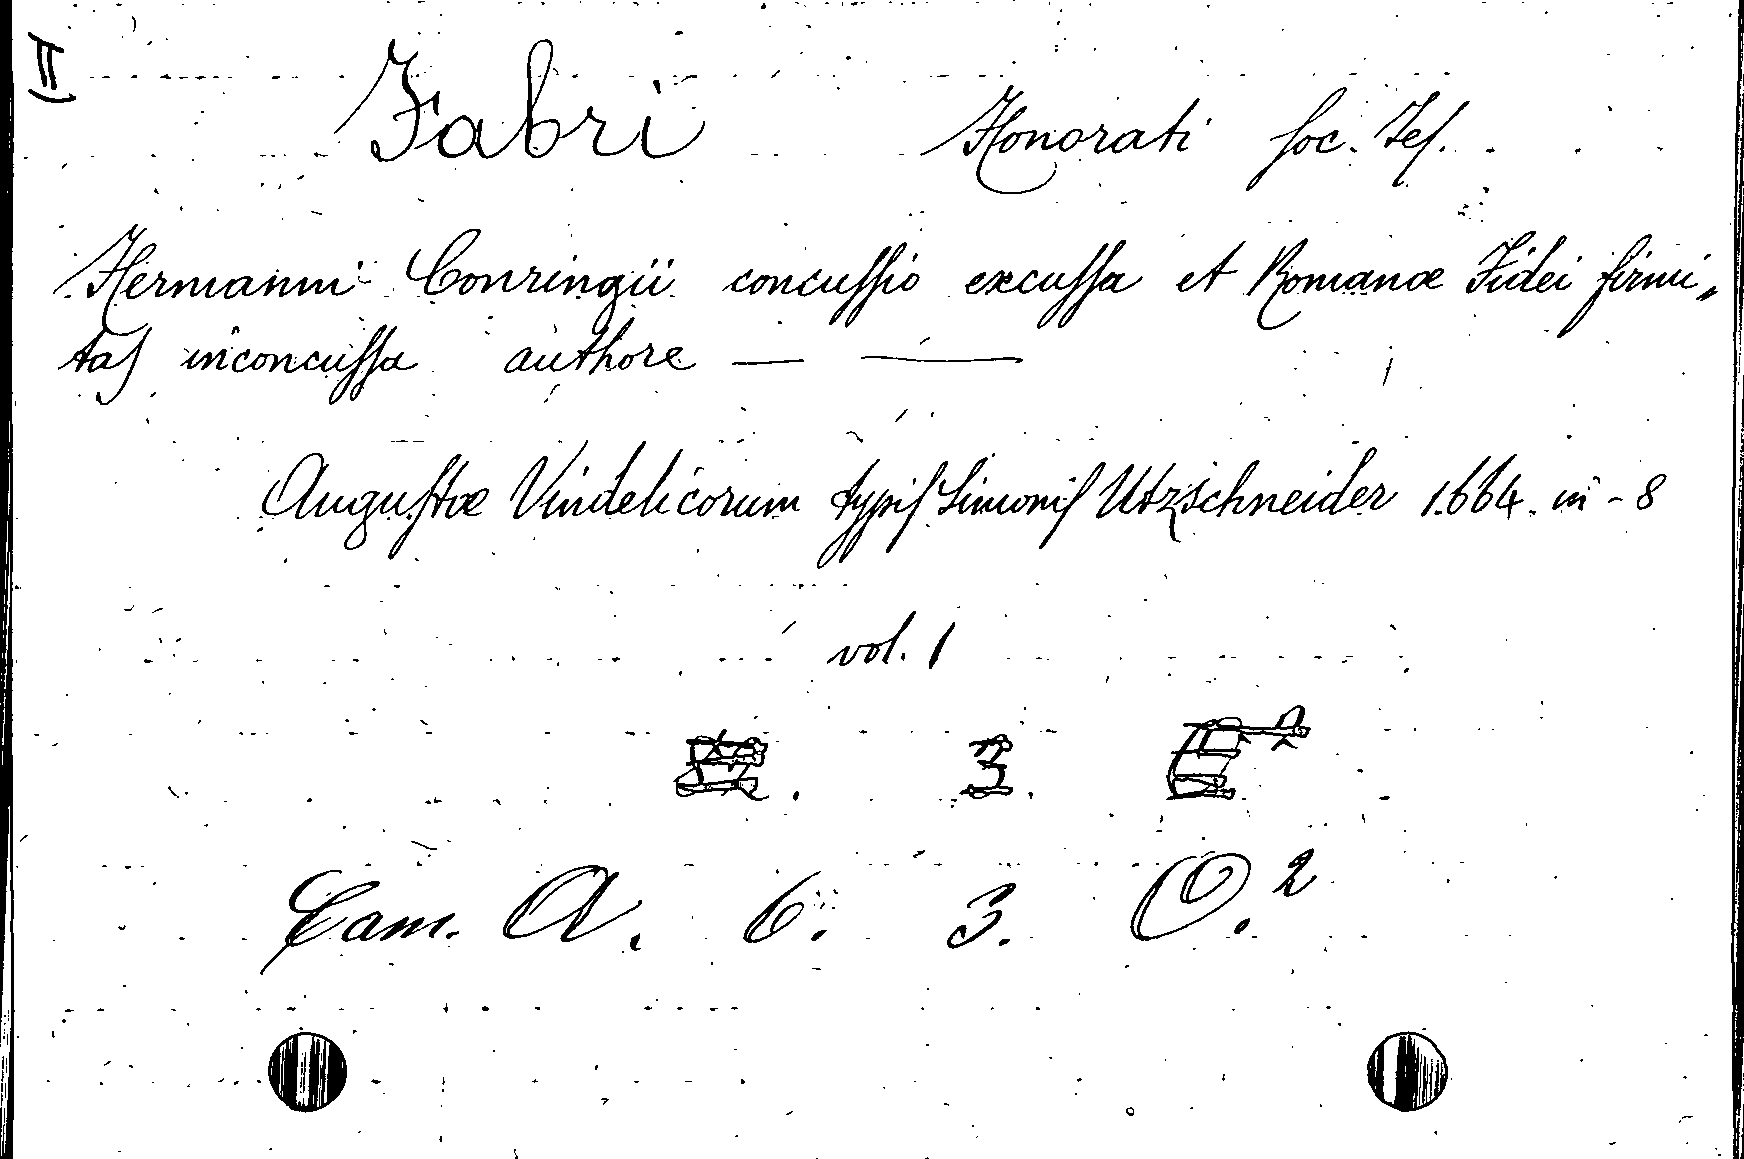 II)
Fabri Honorati Soc. Jes.
Hermanni Conringii concussio excussa et Romanæ Fidei firmi„
tas inconcussa authore — —
Augustæ Vindelicorum typis Simonis Utzschneider 1664. in-8
vol. 1
3.
Cam. A. 6. 3. O.²